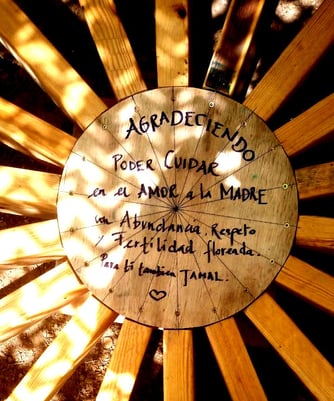 AGRADECIENDO
PODER CUIDAR
en el AMOR a la MADRE
con Abundancia, Respeto
y Fertilidad florenda.
Para ti tambien JAMAL.